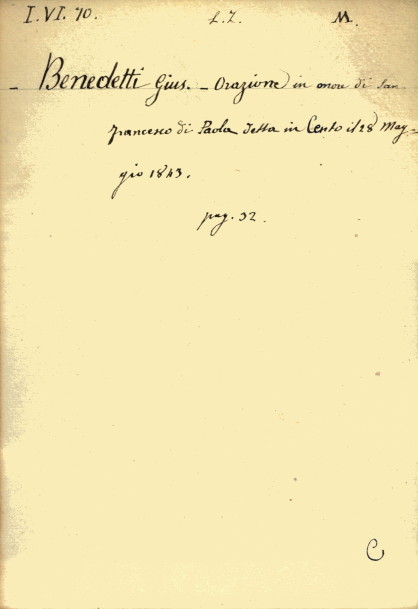 I. VI. 70. L. Z. M.
- Benedetti Gius. - Orazione in onore di San
Francesco di Paola detta in Cento il 28 Mag-
gio 1843.
pag. 32.
C